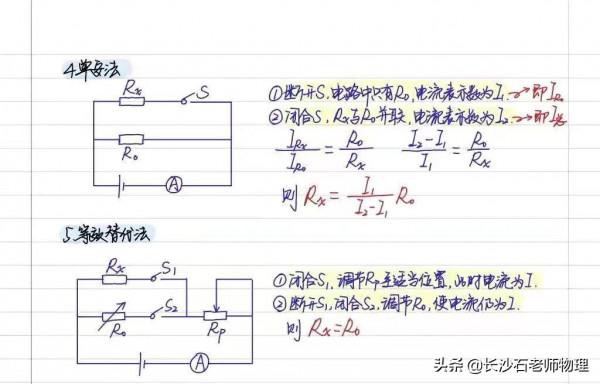 4.单安法
Rx S
R₀
A
①断开S,电路中只有R₀,电流表示数为I₁.→即I_R₀
②闭合S,Rx与R₀并联,电流表示数为I₂.→即I总
I_Rx/I_R₀ = R₀/Rx (I₂-I₁)/I₁ = R₀/Rx
则 Rx = I₁/(I₂-I₁) R₀
5.等效替代法
Rx S₁
R₀ S₂ Rp
A
①闭合S₁,调节Rp至适当位置,此时电流为I.
②断开S₁,闭合S₂.调节R₀,使电流仍为I.
则 Rx=R₀
头条 @长沙石老师物理